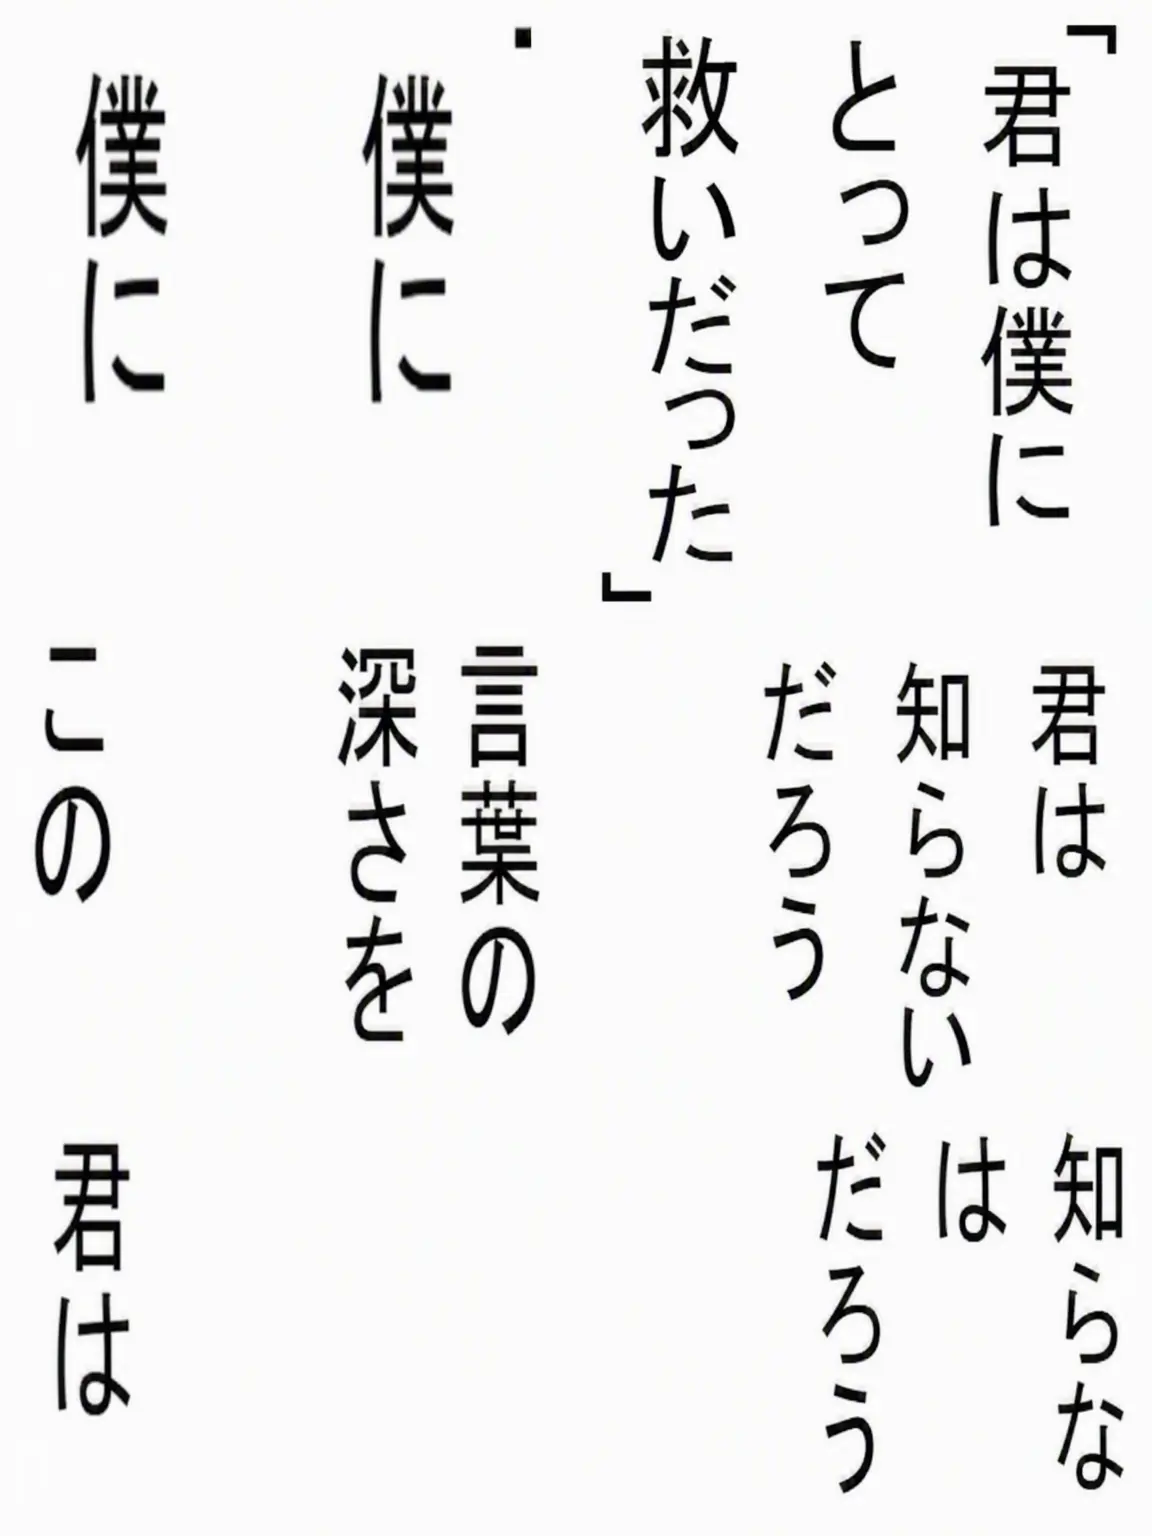 「君は僕に
とって
救いだった」
・
僕に
僕に
君は
知らない
だろう
言葉の
深さを
この
知らな
は
だろう
君は